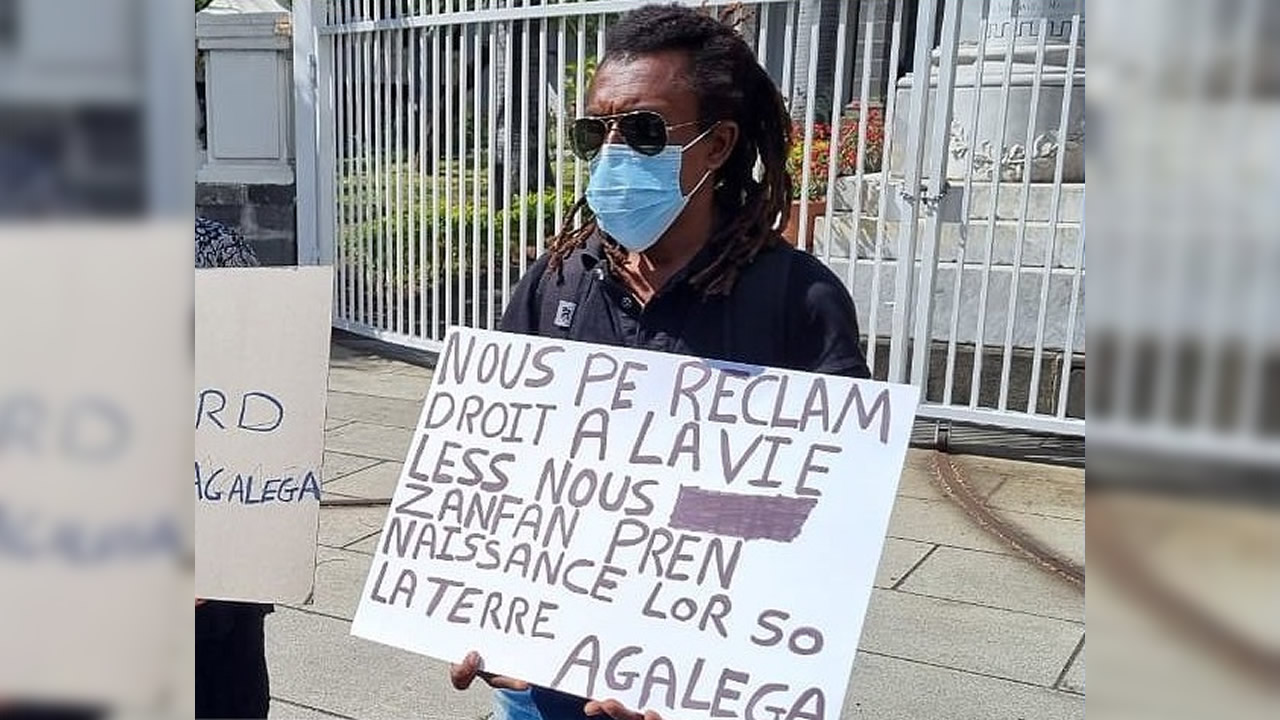 RD
AGALEGA
NOUS PE RECLAM
DROIT A LA VIE
LESS NOUS
ZANFAN PREN
NAISSANCE LOR SO
LA TERRE
AGALEGA